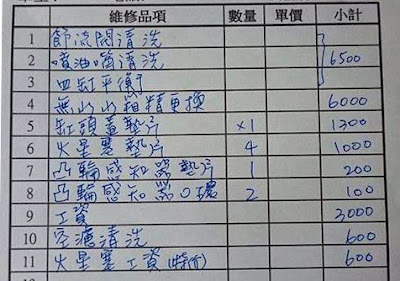 維修品項 數量 單價 小計
1 節流閥清洗
2 噴油嘴清洗 6500
3 四缸平衡
4 無水水箱精更換 6000
5 缸頭蓋墊片 ×1 1300
6 火星塞墊片 4 1000
7 凸輪感知器墊片 1 200
8 凸輪感知器O環 2 100
9 工資 3000
10 空濾清洗 600
11 火星塞工資(特價) 600